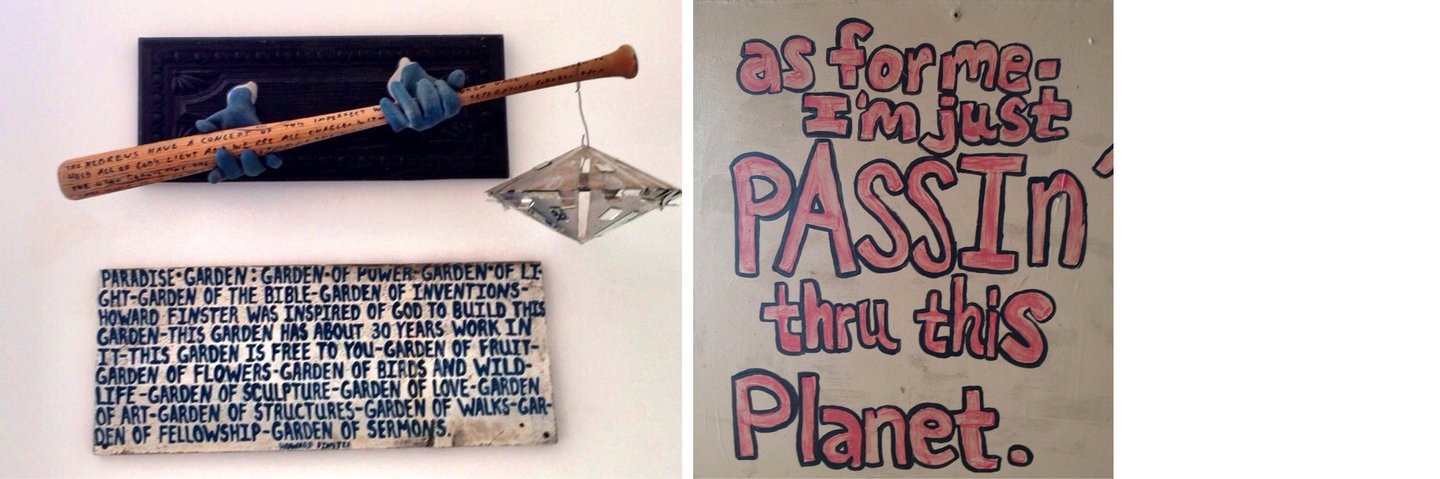 THE HEBREWS HAVE A CONCEPT OF THIS IMPERFECT
ALL OF GOD'S LIGHT AND WE ARE ALL
PARADISE·GARDEN: GARDEN·OF POWER-GARDEN·OF LI-
GHT-GARDEN OF THE BIBLE-GARDEN OF INVENTIONS-
HOWARD FINSTER WAS INSPIRED OF GOD TO BUILD THIS
GARDEN-THIS GARDEN HAS ABOUT 30 YEARS WORK IN
IT-THIS GARDEN IS FREE TO YOU-GARDEN OF FRUIT-
GARDEN OF FLOWERS-GARDEN OF BIRDS AND WILD-
LIFE-GARDEN OF SCULPTURE-GARDEN OF LOVE-GARDEN
OF ART-GARDEN OF STRUCTURES-GARDEN OF WALKS-GAR-
DEN OF FELLOWSHIP-GARDEN OF SERMONS.
HOWARD FINSTER
as for me-
I'm just
PASSIn'
thru this
Planet.